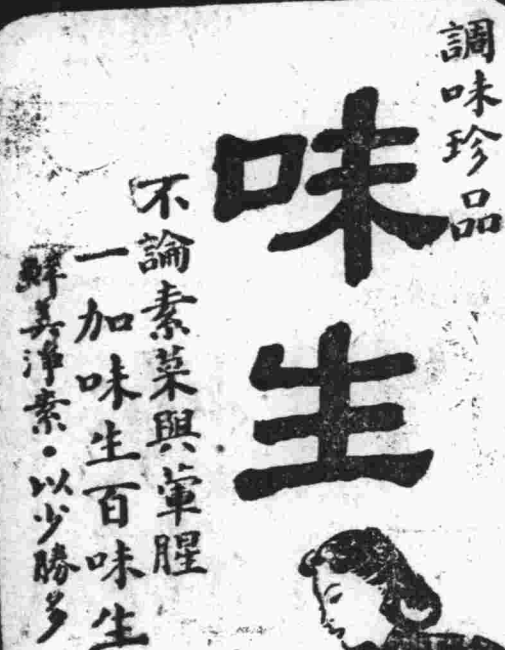 調味珍品
味生
不論素菜與葷腥
一加味生百味生
鮮美淨素。以少勝多